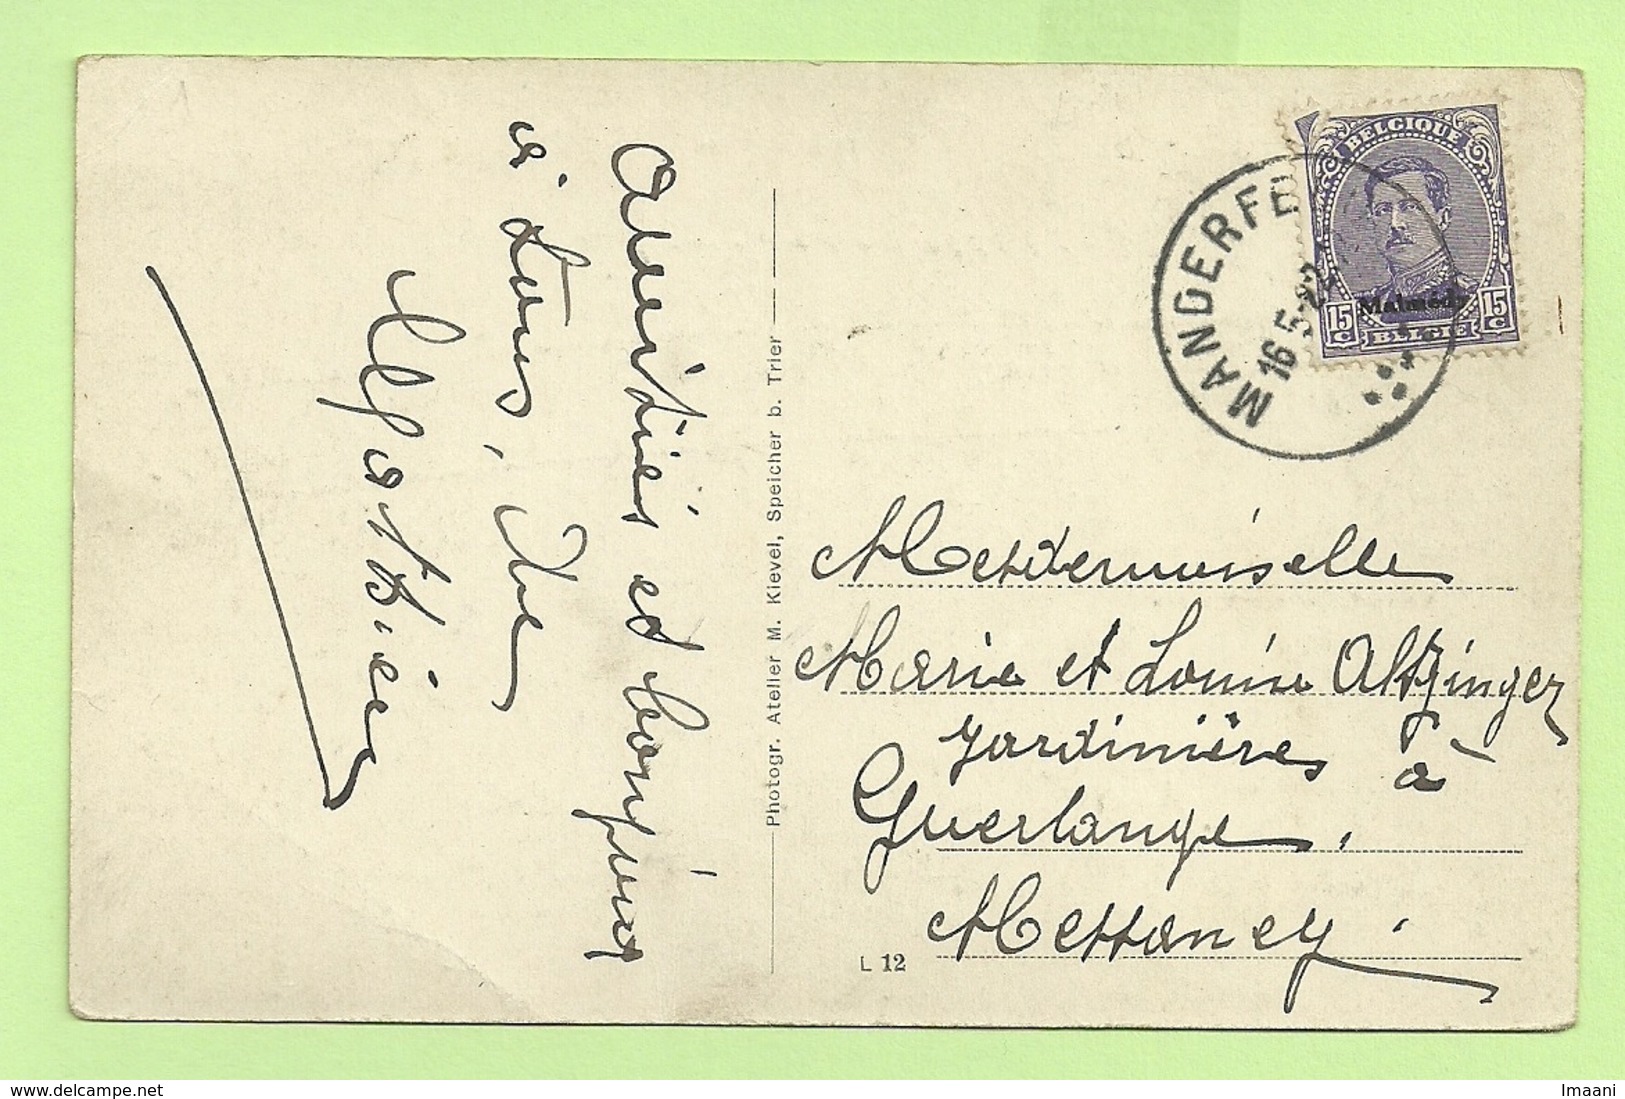 Amitiés et bonjour
à tous, de
Mathieu
Photogr. Atelier M. Kievel, Speicher b. Trier
L 12
MANDERFE
16 5 22
BELGIQUE
Malmédy
15 C
15 C
BELGIE
Mesdemoiselle
Marie et Louise Altzinger
Jardinières à
Guerlange.
Messancy.
delcampe.net
Imaani